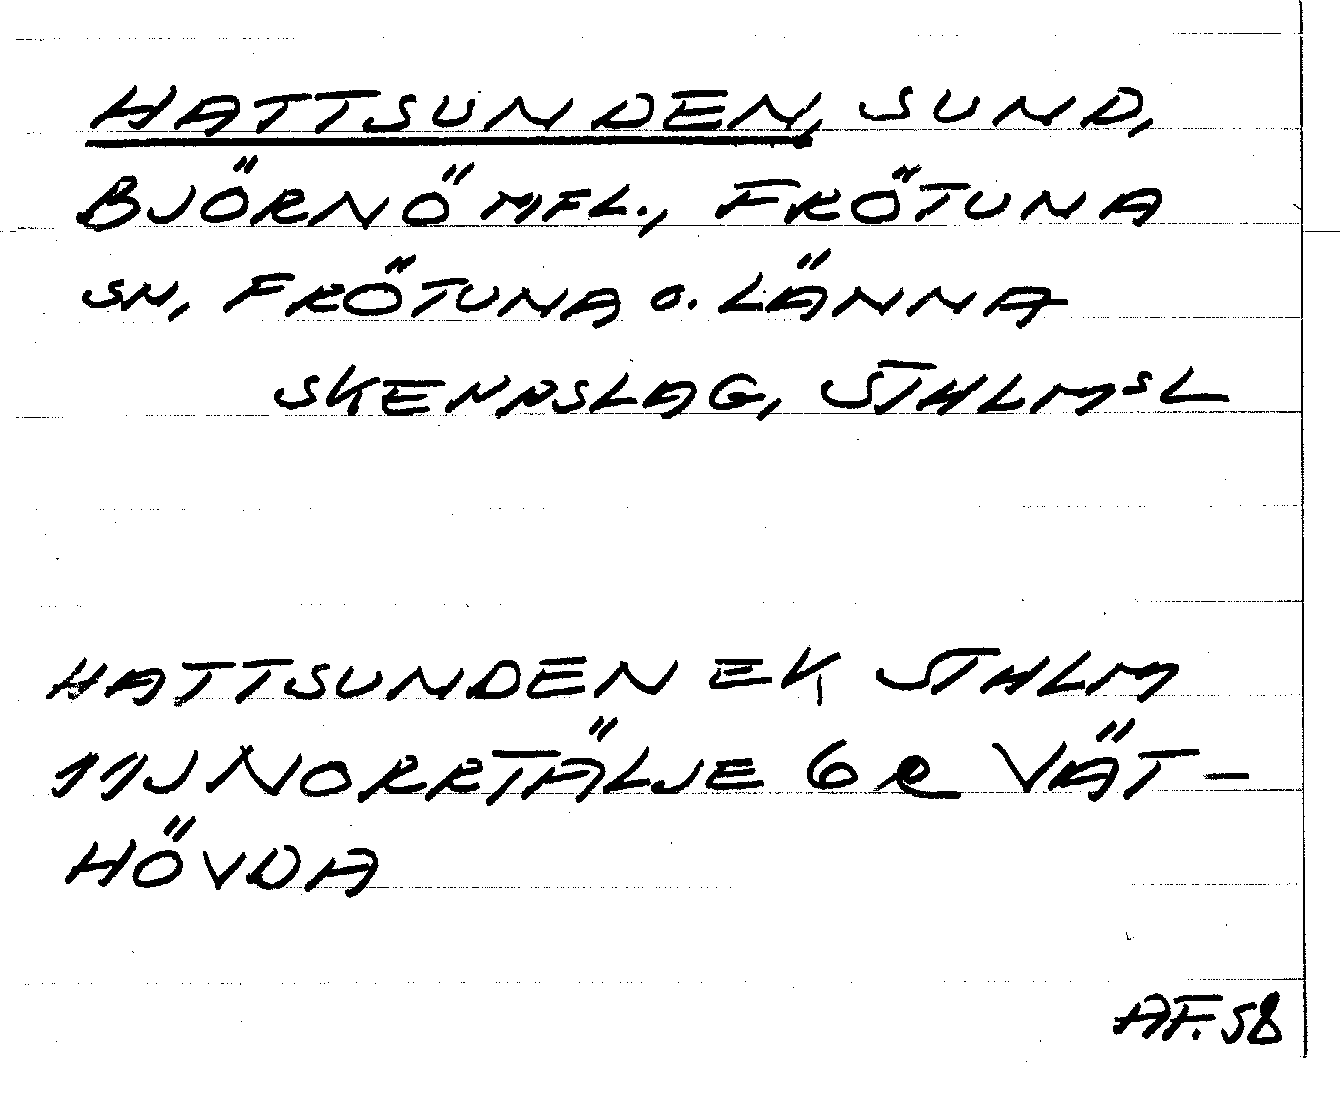 HATTSUNDEN, SUND,
BJÖRNÖ MFL., FRÖTUNA
SN, FRÖTUNA o. LÄNNA
SKEPPSLAG, STHLMsL
HATTSUNDEN EK STHLM
11J NORRTÄLJE 6 e VÄT-
HÖVDA
AF. 58